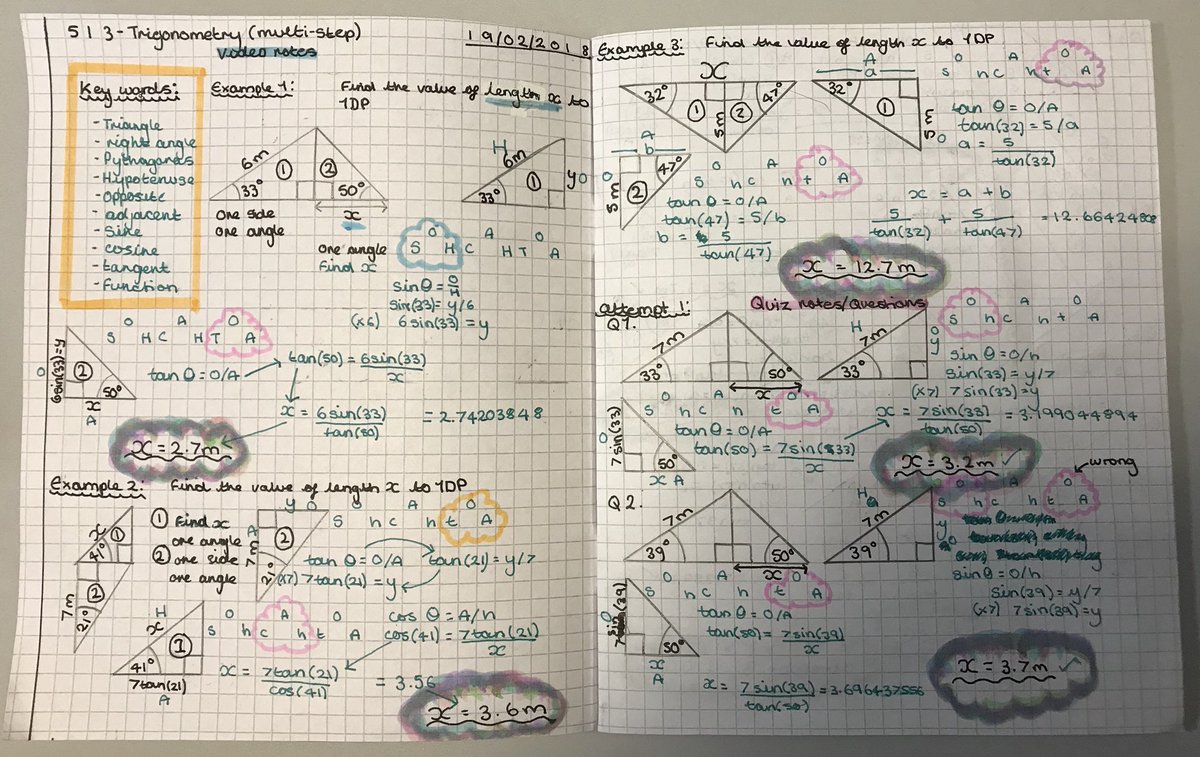 513-Trigonometry (multi-step)
video notes
19/02/2018
Key words:
- Triangle
- right angle
- Pythagoras
- Hypotenuse
- opposite
- adjacent
- Sine
- cosine
- tangent
- Function
Example 1: Find the value of length x to
1DP
6m
1
2
33°
50°
x
one side
one angle
one angle
Find x
H
6m
1
y O
33°
O A O
S H C H T A
sinθ = O/H
sin(33) = y/6
(x6) 6sin(33) = y
O A O
S H C H T A
O
6sin(33)=y
2
50°
x
A
tan θ = O/A
tan(50) = 6sin(33)/x
x = 6sin(33)/tan(50) = 2.74203848
x = 2.7m
Example 2: Find the value of length x to 1DP
x
1
41°
2
7m
21°
1 Find x
one angle
2 one side
one angle
y O
A
7m
2
21°
O A O
S h c h t A
tan θ = O/A
tan(21) = y/7
(x7) 7tan(21) = y
H
x
1
41°
7tan(21)
A
O A O
S h c h t A
cos θ = A/h
cos(41) = 7tan(21)/x
x = 7tan(21)/cos(41) = 3.56
x = 3.6m
Example 3: Find the value of length x to 1DP
x
32°
1
2
47°
5m
A
a
32°
1
5m
O
O A O
S h c h t A
tan θ = O/A
tan(32) = 5/a
a = 5/tan(32)
A
b
O
5m
47°
2
O A O
S h c h t A
tan θ = O/A
tan(47) = 5/b
b = 5/tan(47)
x = a + b
5/tan(32) + 5/tan(47) = 12.6642480
x = 12.7m
attempt 1: Quiz notes/Questions
Q1.
7m
33°
50°
x
H
7m
O
y
33°
O A O
S h c h t A
sin θ = O/h
sin(33) = y/7
(x7) 7sin(33) = y
O
7sin(33)
50°
x A
O A O
S h c h t A
tan θ = O/A
tan(50) = 7sin(33)/x
x = 7sin(33)/tan(50) = 3.199044894
x = 3.2m ✓
Q2.
7m
39°
50°
x
H
7m
y
39°
wrong
O A O
S h c h t A
sin θ = O/h
sin(39) = y/7
(x7) 7sin(39) = y
O
7sin(39)
50°
x
A
O A O
S h c h t A
tan θ = O/A
tan(50) = 7sin(39)/x
x = 7sin(39)/tan(50) = 3.696437556
x = 3.7m ✓